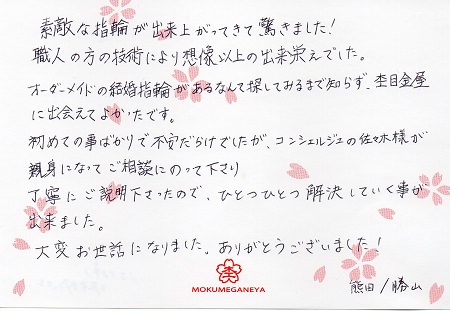 素敵な指輪が出来上がってきて驚きました！
職人の方の技術により想像以上の出来栄えでした。
オーダーメイドの結婚指輪があるなんて探してみるまで知らず、杢目金屋
に出会えてよかったです。
初めての事ばかりで不安だらけでしたが、コンシェルジュの佐々木様が
親身になってご相談にのって下さり
丁寧にご説明下さったので、ひとつひとつ解決していく事が
出来ました。
大変お世話になりました。ありがとうございました！
MOKUMEGANEYA
熊田／勝山